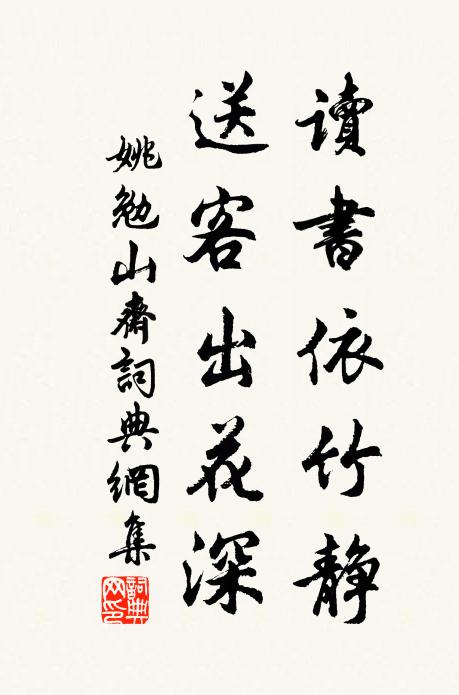 讀書依竹静
送客出花深
姚勉山齋詞典網集
詞典网印